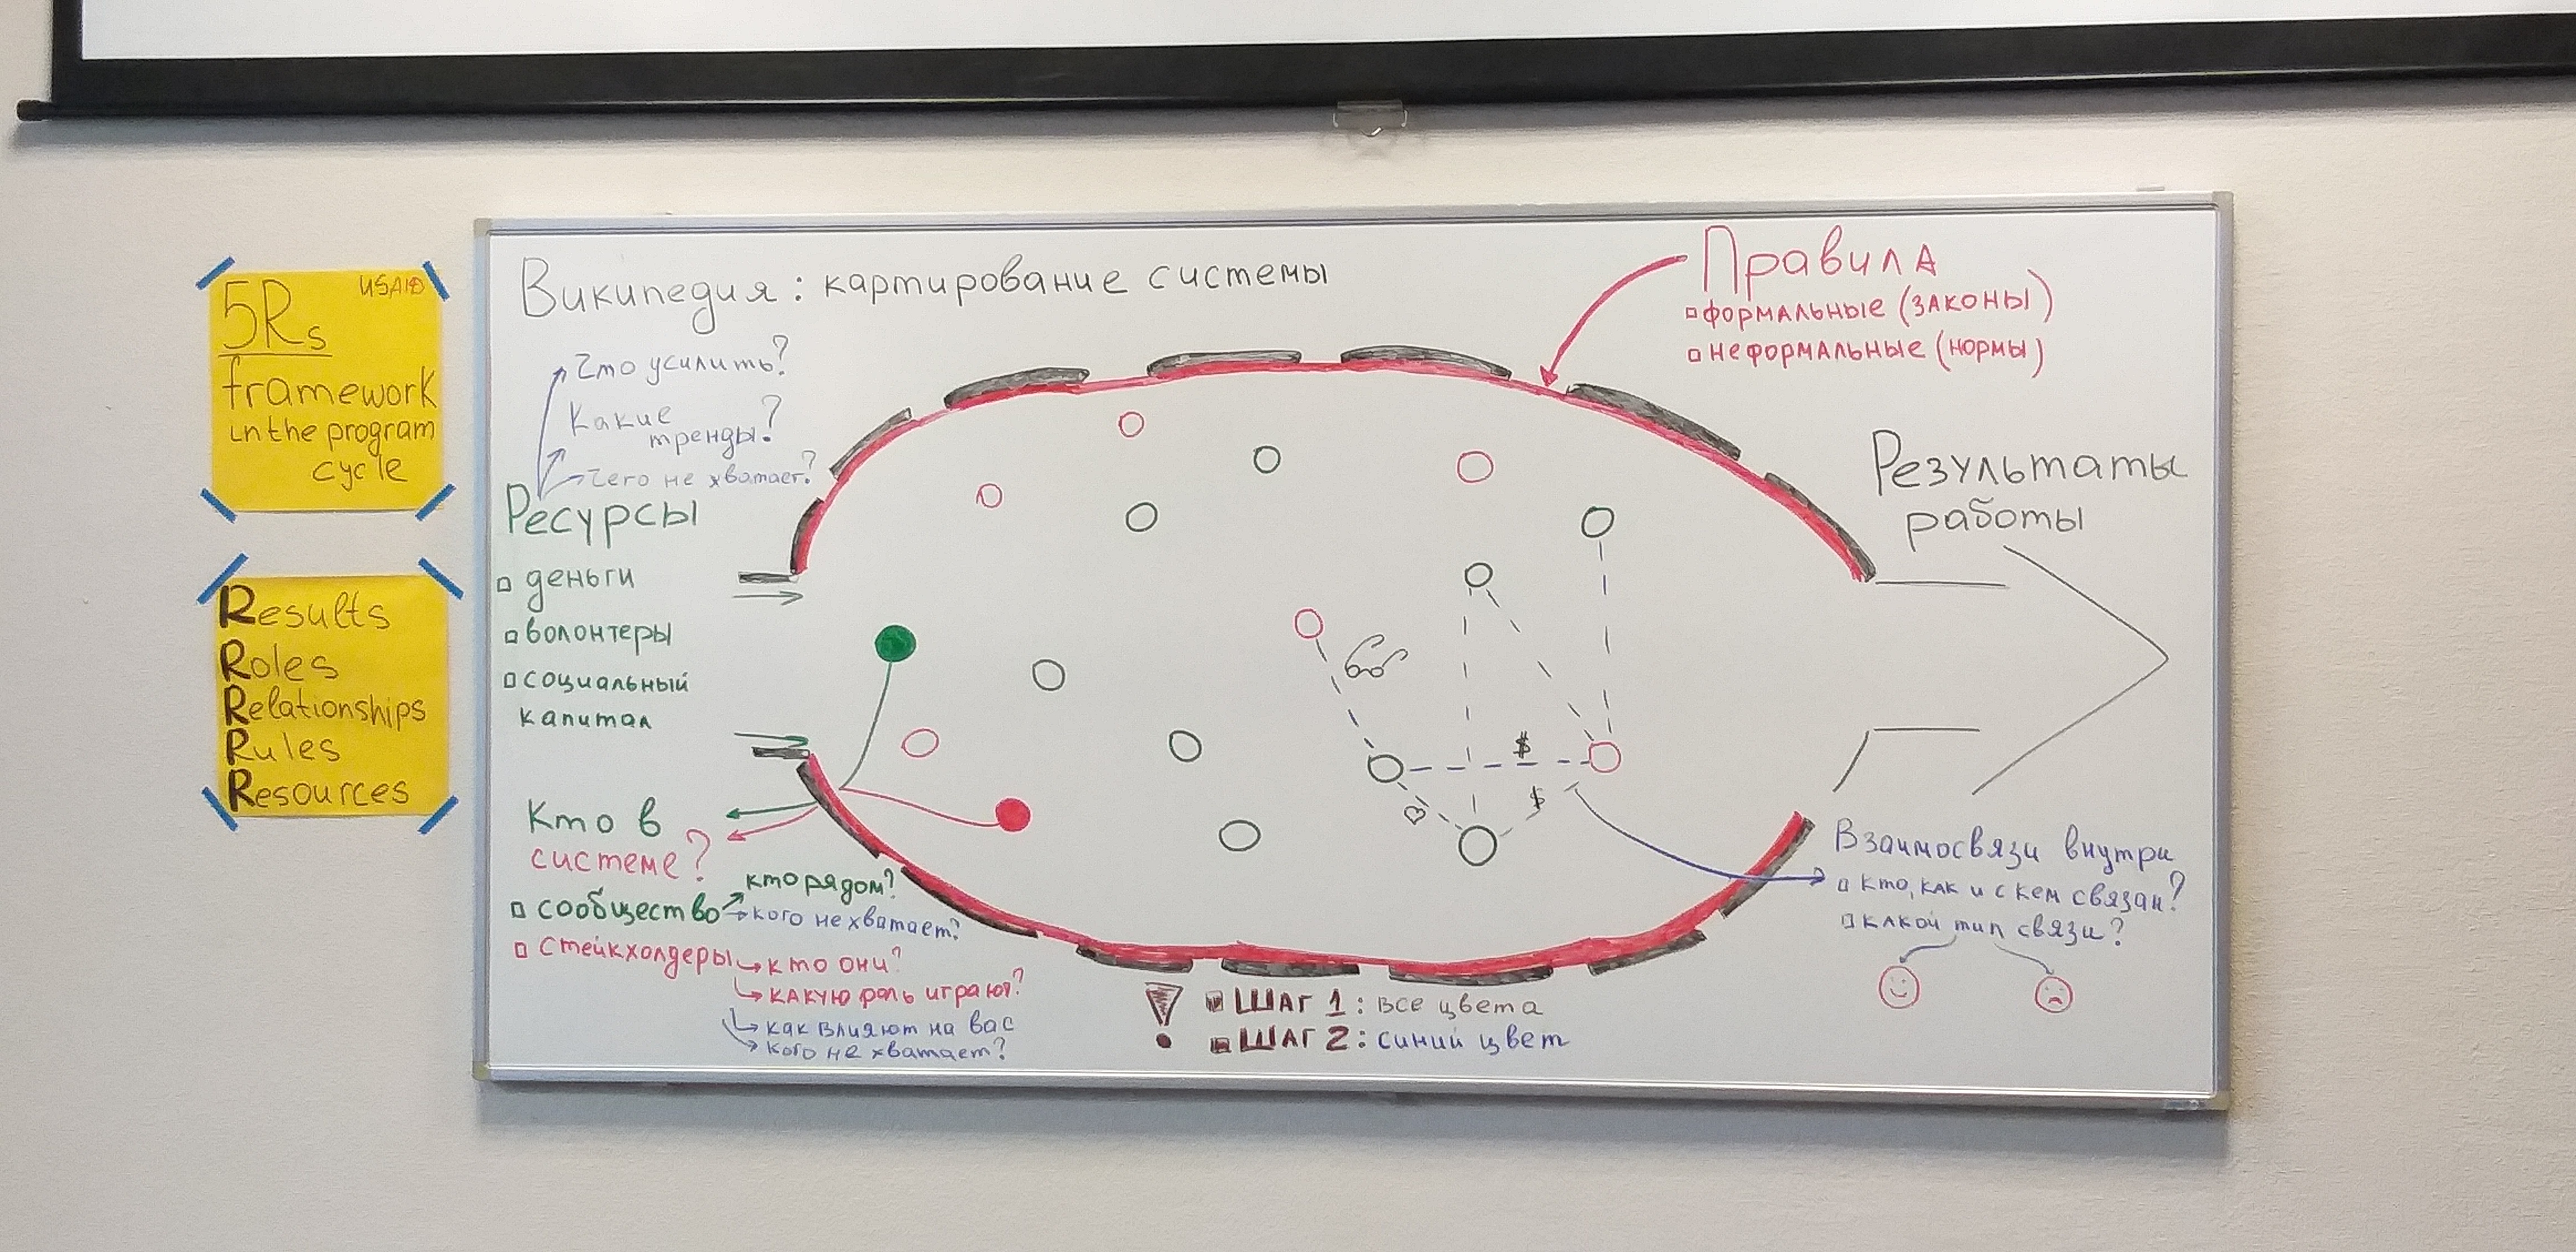 5Rs USAID
framework
in the program
cycle
Results
Roles
Relationships
Rules
Resources
Википедия: картирование системы
Что усилить?
Какие
тренды?
Чего не хватает?
Ресурсы
деньги
волонтеры
социальный
капитал
Кто в
системе?
сообщество
кто рядом?
кого не хватает?
стейкхолдеры
кто они?
какую роль играют?
как влияют на вас
кого не хватает?
$
$
ШАГ 1: все цвета
ШАГ 2: синий цвет
Правила
формальные (законы)
неформальные (нормы)
Результаты
работы
Взаимосвязи внутри
кто, как и с кем связан?
какой тип связи?